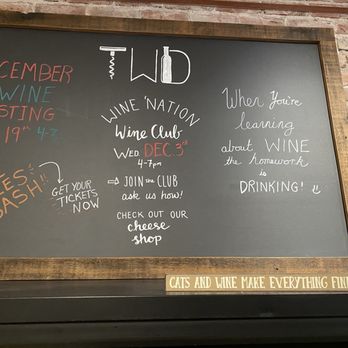 CEMBER
WINE
STING
19th 4-7
LES
BASH!!
GET YOUR
TICKETS
NOW
TWD
WINE 'NATION
Wine Club
WED DEC. 3rd
4-7pm
JOIN the CLUB
ask us how!
CHECK OUT OUR
cheese
shop
When You're
learning
about WINE
the homework
is
DRINKING!
CATS AND WINE MAKE EVERYTHING FIN